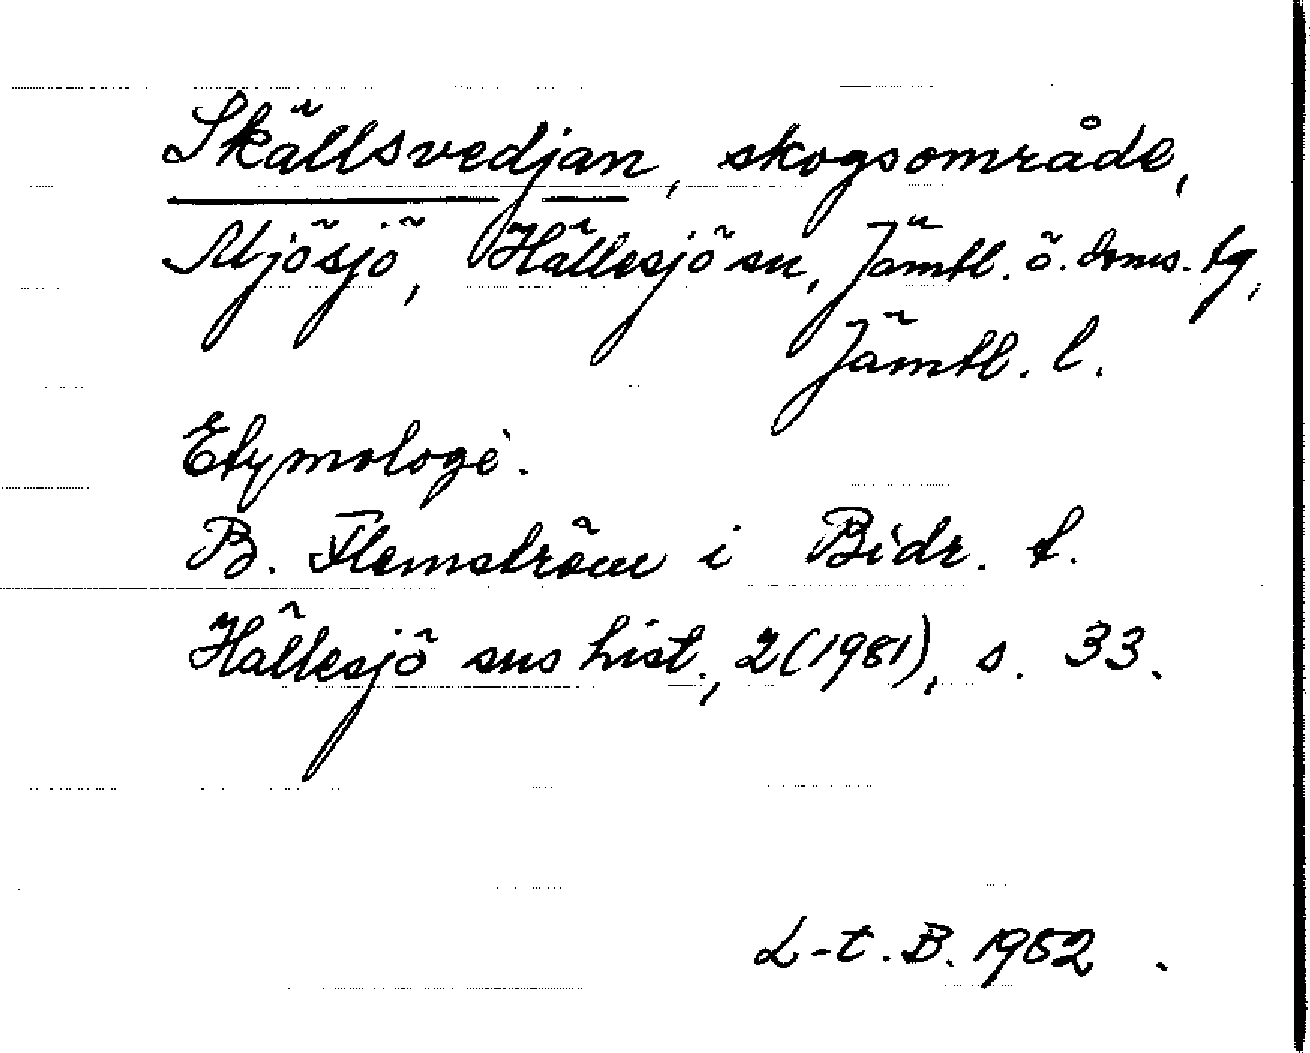 Skällsvedjan, skogsområde,
Mjösjö, Hällesjö sn, Jämtl. ö. doms. tg,
Jämtl. l.
Etymologi.
B. Flemström i Bidr. t.
Hällesjö sns hist., 2 (1981), s. 33.
L-t. B. 1982.